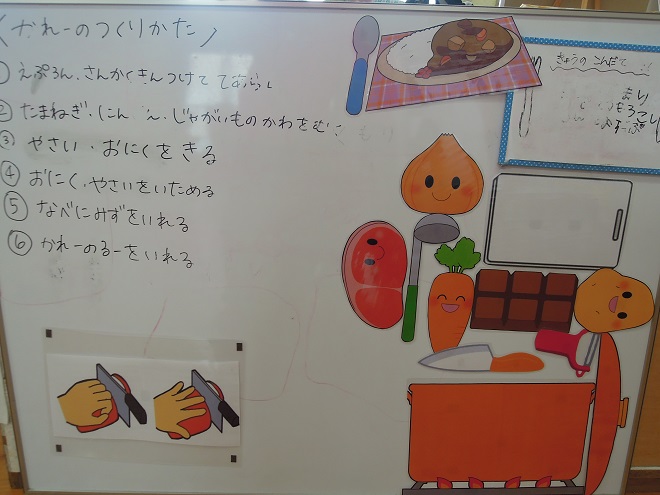 かれーのつくりかた
① えぷろん、さんかくきんつけて てあらい
② たまねぎ・にん ん・じゃがいものかわをむく
③ やさい・おにくをきる
④ おにく、やさいをいためる
⑤ なべにみずをいれる
⑥ かれーのるーをいれる
きょうの こんだて